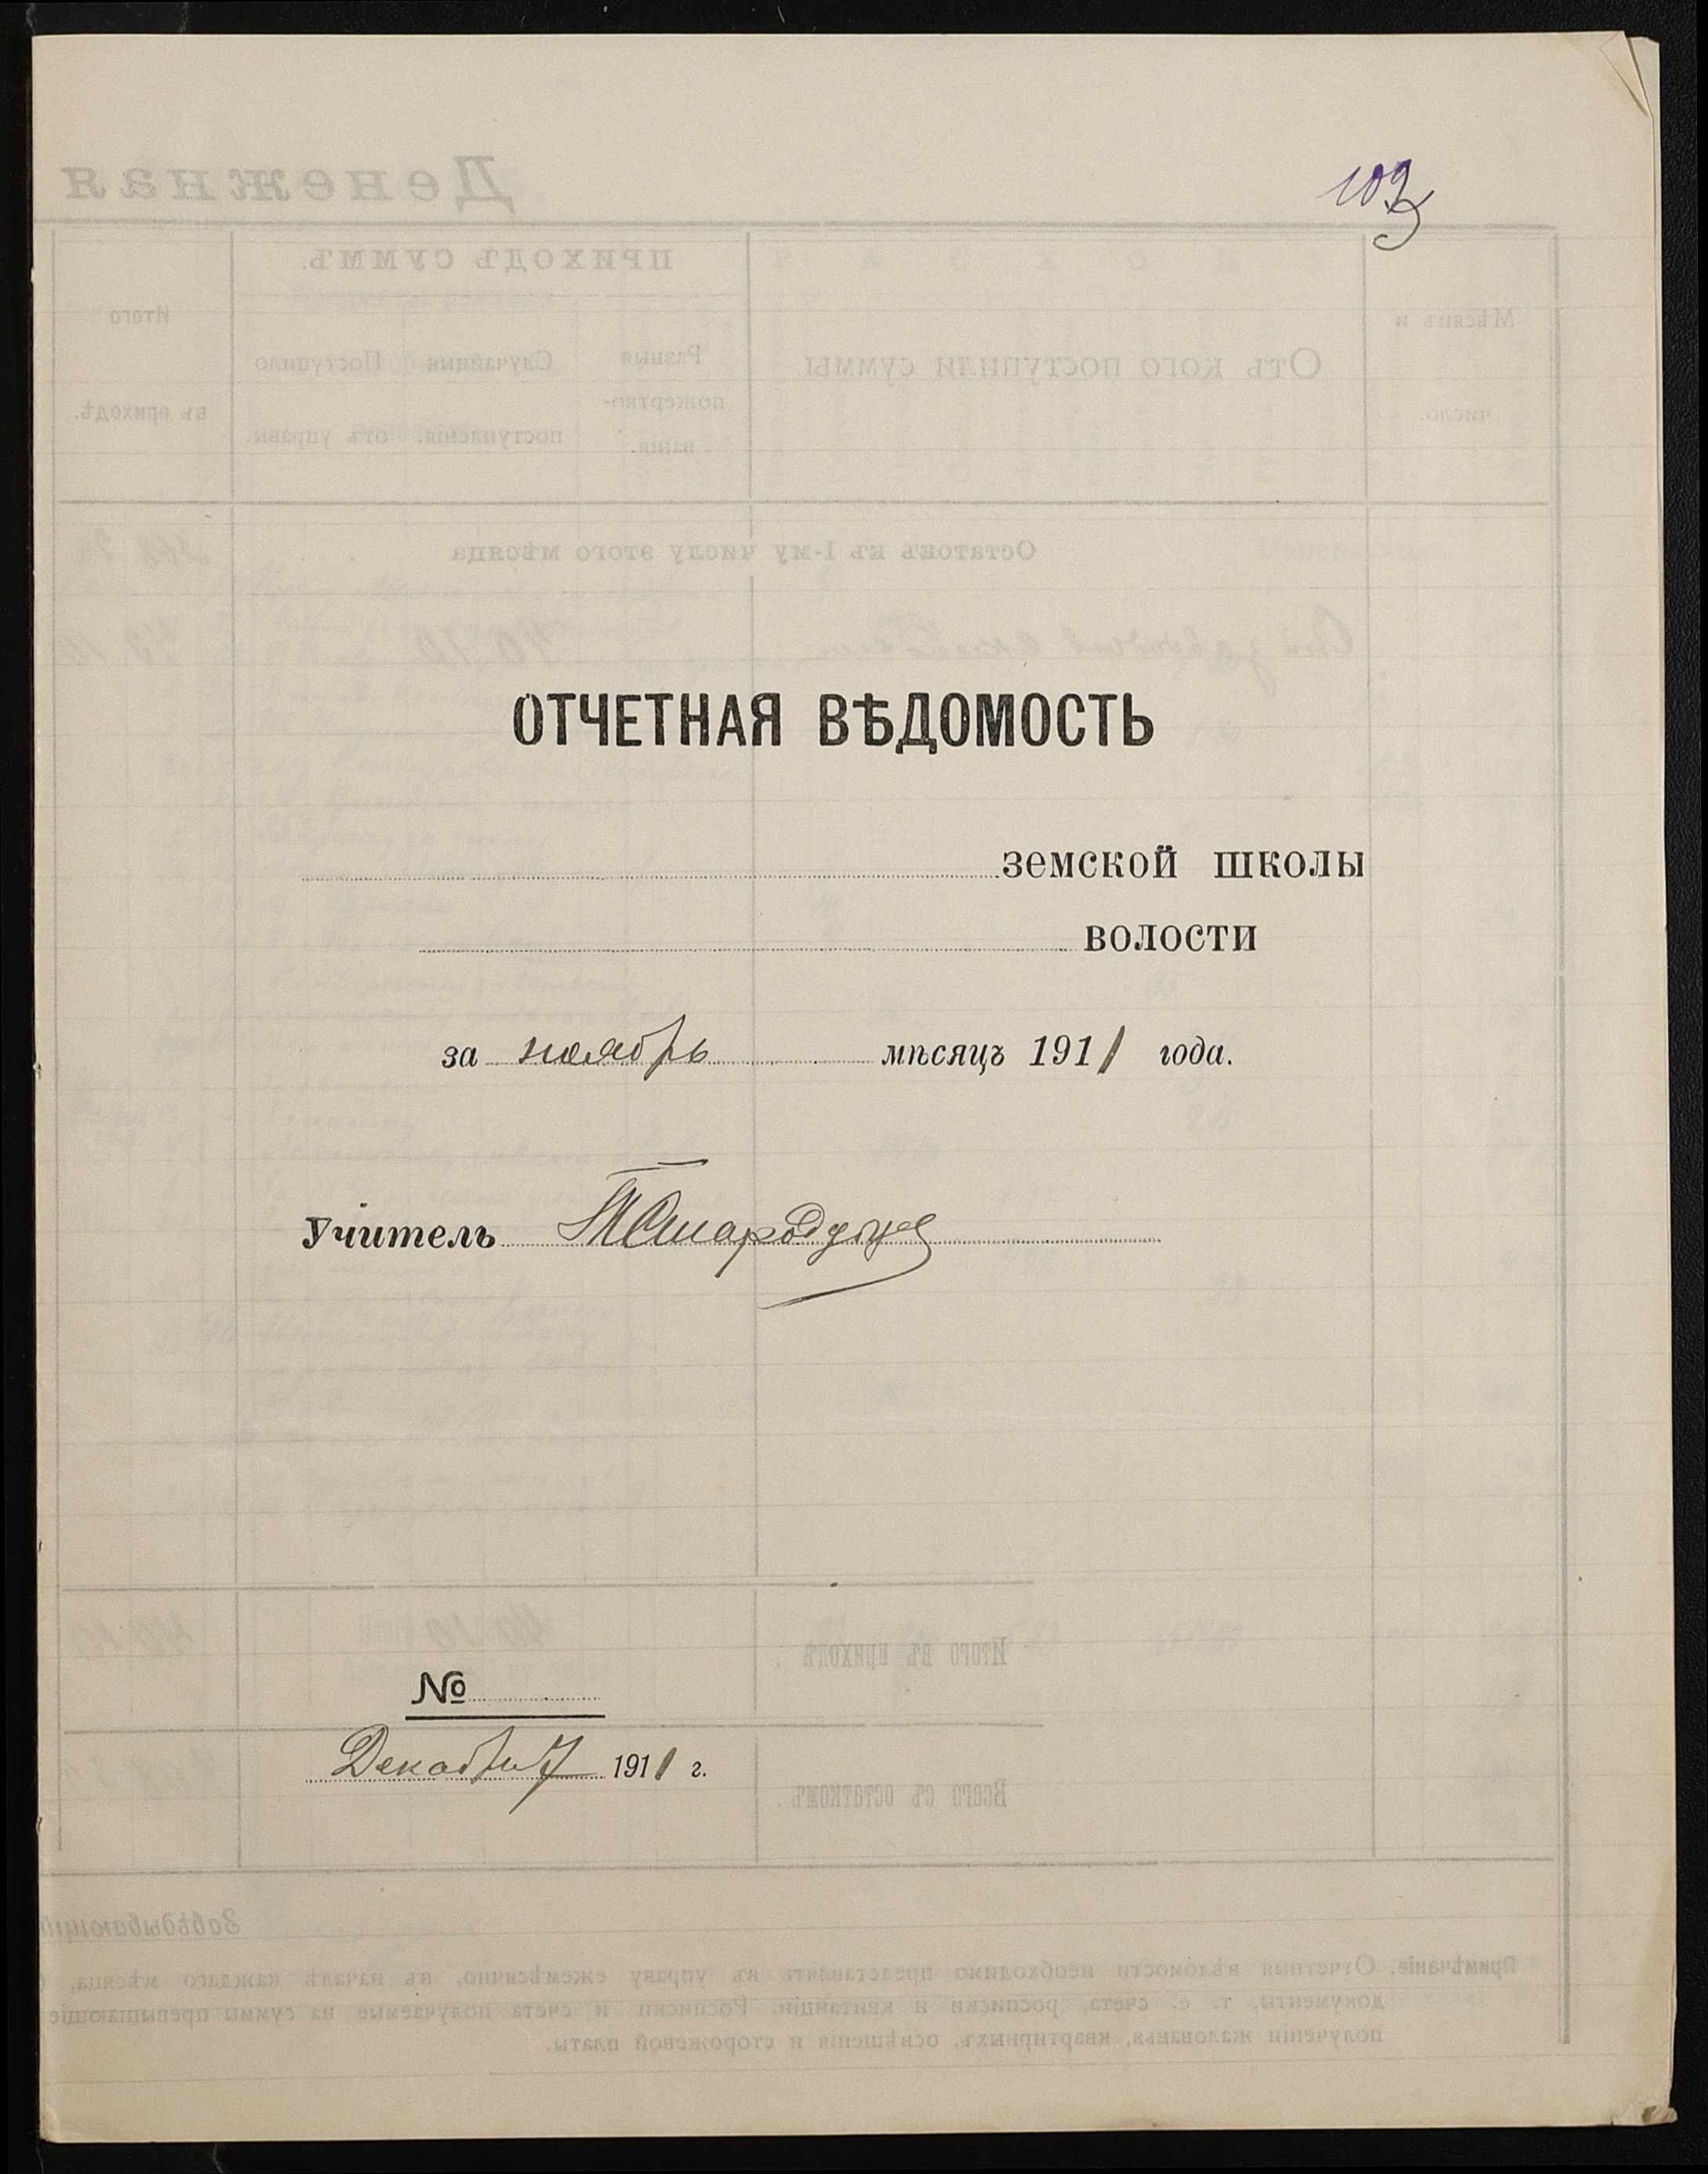 103
ОТЧЕТНАЯ ВѢДОМОСТЬ
земской школы
волости
за ноябрь мѣсяцъ 1911 года.
Учитель
№
Декабрь 7 1911 г.